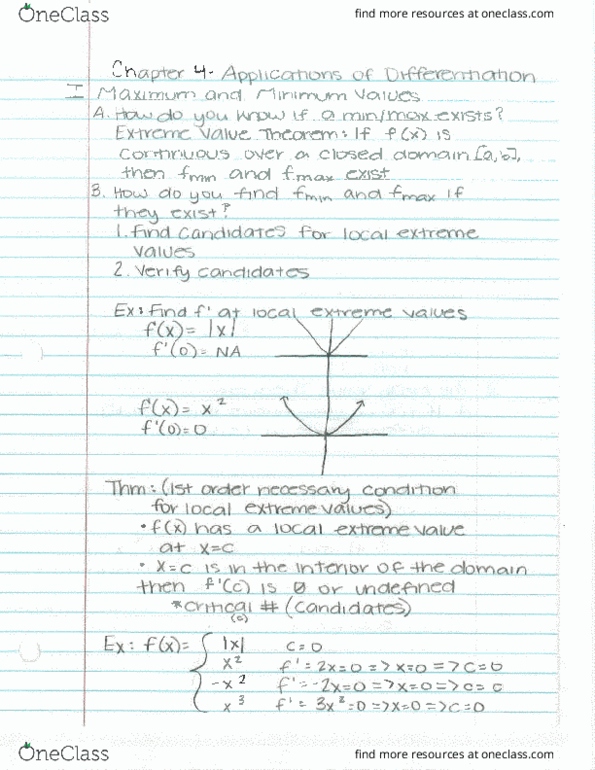 OneClass
find more resources at oneclass.com
Chapter 4- Applications of Differentiation
I Maximum and Minimum Values
A. How do you know if a min/max exists?
Extreme Value Theorem: If f(x) is
continuous over a closed domain [a,b],
then fmin and fmax exist
B. How do you find fmin and fmax if
they exist?
1. Find candidates for local extreme
values
2. Verify candidates
Ex: Find f' at local extreme values
f(x) = |x|
f'(0) = NA
f(x) = x²
f'(0) = 0
Thm: (1st order necessary condition
for local extreme values)
• f(x) has a local extreme value
at x=c
• x=c is in the interior of the domain
then f'(c) is 0 or undefined
*critical # (candidates)
(c)
Ex: f(x) = { |x| c=0
x² f' = 2x=0 => x=0 => c=0
-x² f' = -2x=0 => x=0 => c= c
x³ f' = 3x²=0 => x=0 => c=0
OneClass
find more resources at oneclass.com